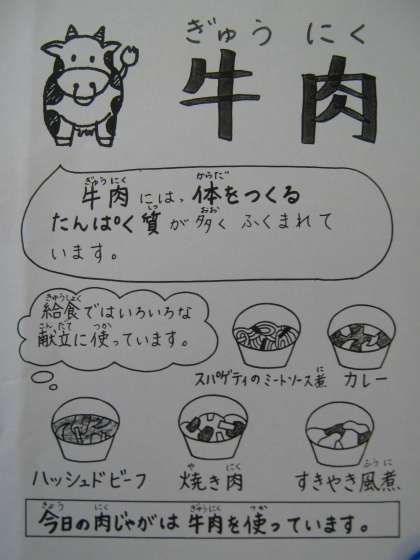 ぎゅう にく
牛 肉
ぎゅうにく からだ
牛肉には、体をつくる
しつ おお
たんぱく質が多くふくまれて
います。
きゅうしょく
給食ではいろいろな
こんだて つか
献立に使っています。
に
スパゲティのミートソース煮 カレー
や にく ふうに
ハッシュドビーフ 焼き肉 すきやき風煮
きょう にく ぎゅうにく つか
今日の肉じゃがは牛肉を使っています。